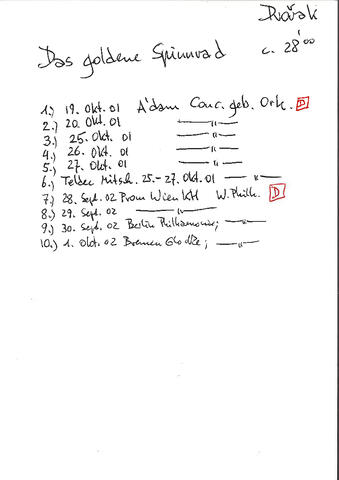 Dvořák
Das goldene Spinnrad c. 28'00
1.) 19. Okt. 01 A'dam Conc. geb. Ork. D
2.) 20. Okt. 01 —"—
3.) 25. Okt. 01 —"—
4.) 26. Okt. 01 —"—
5.) 27. Okt. 01 —"—
6.) Teldec Mitsch. 25.-27. Okt. 01 —"—
7.) 28. Sept. 02 Prom Wien KH W. Philh. D
8.) 29. Sept. 02 —"—
9.) 30. Sept. 02 Berlin Philharmonie; —"—
10.) 1. Okt. 02 Bremen Glocke; —"—